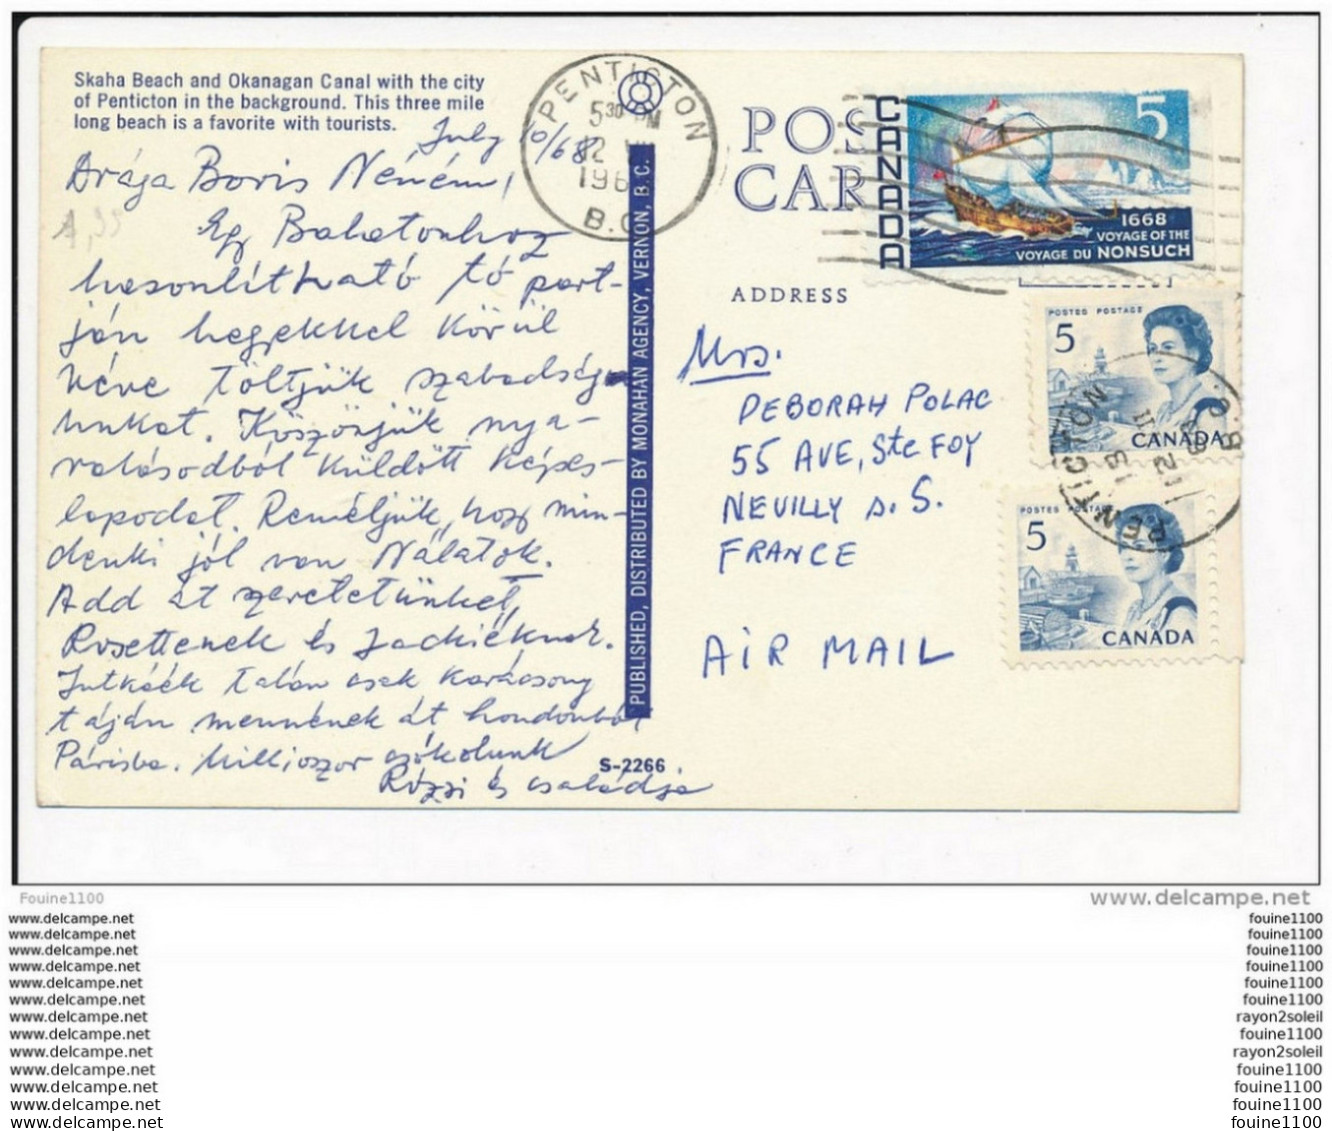 Skaha Beach and Okanagan Canal with the city
of Penticton in the background. This three mile
long beach is a favorite with tourists.
July 10/68
Drága Boris Néném,
Egy Balatonhoz
hasonlítható tó part-
ján hegyekkel körül
véve töltjük szabadságu
unkat. Köszönjük nya-
ralásodból küldött képes-
lapodat. Reméljük, hogy min-
denki jól van Nálatok.
Add át szeretetünket,
Rosettenek és Jackiéknak.
Jutkáék talán csak karácsony
táján mennének át Londonból
Párisba. Milliószor csókolunk
Rózsi és családja
PENTICTON
5 30 PM
12
196
B.C.
PUBLISHED, DISTRIBUTED BY MONAHAN AGENCY, VERNON, B.C.
S-2266
POS
CAR
ADDRESS
CANADA
5
1668
VOYAGE OF THE
VOYAGE DU NONSUCH
POSTES POSTAGE
5
CANADA
POSTES POSTAGE
5
CANADA
PENTICTON
Mrs.
DEBORAH POLAC
55 AVE, Ste FOY
NEUILLY s. S.
FRANCE
AIR MAIL
Fouine1100
www.delcampe.net
www.delcampe.net
www.delcampe.net
www.delcampe.net
www.delcampe.net
www.delcampe.net
www.delcampe.net
www.delcampe.net
www.delcampe.net
www.delcampe.net
www.delcampe.net
www.delcampe.net
www.delcampe.net
www.delcampe.net
fouine1100
fouine1100
fouine1100
fouine1100
fouine1100
fouine1100
rayon2soleil
fouine1100
rayon2soleil
fouine1100
fouine1100
fouine1100
fouine1100